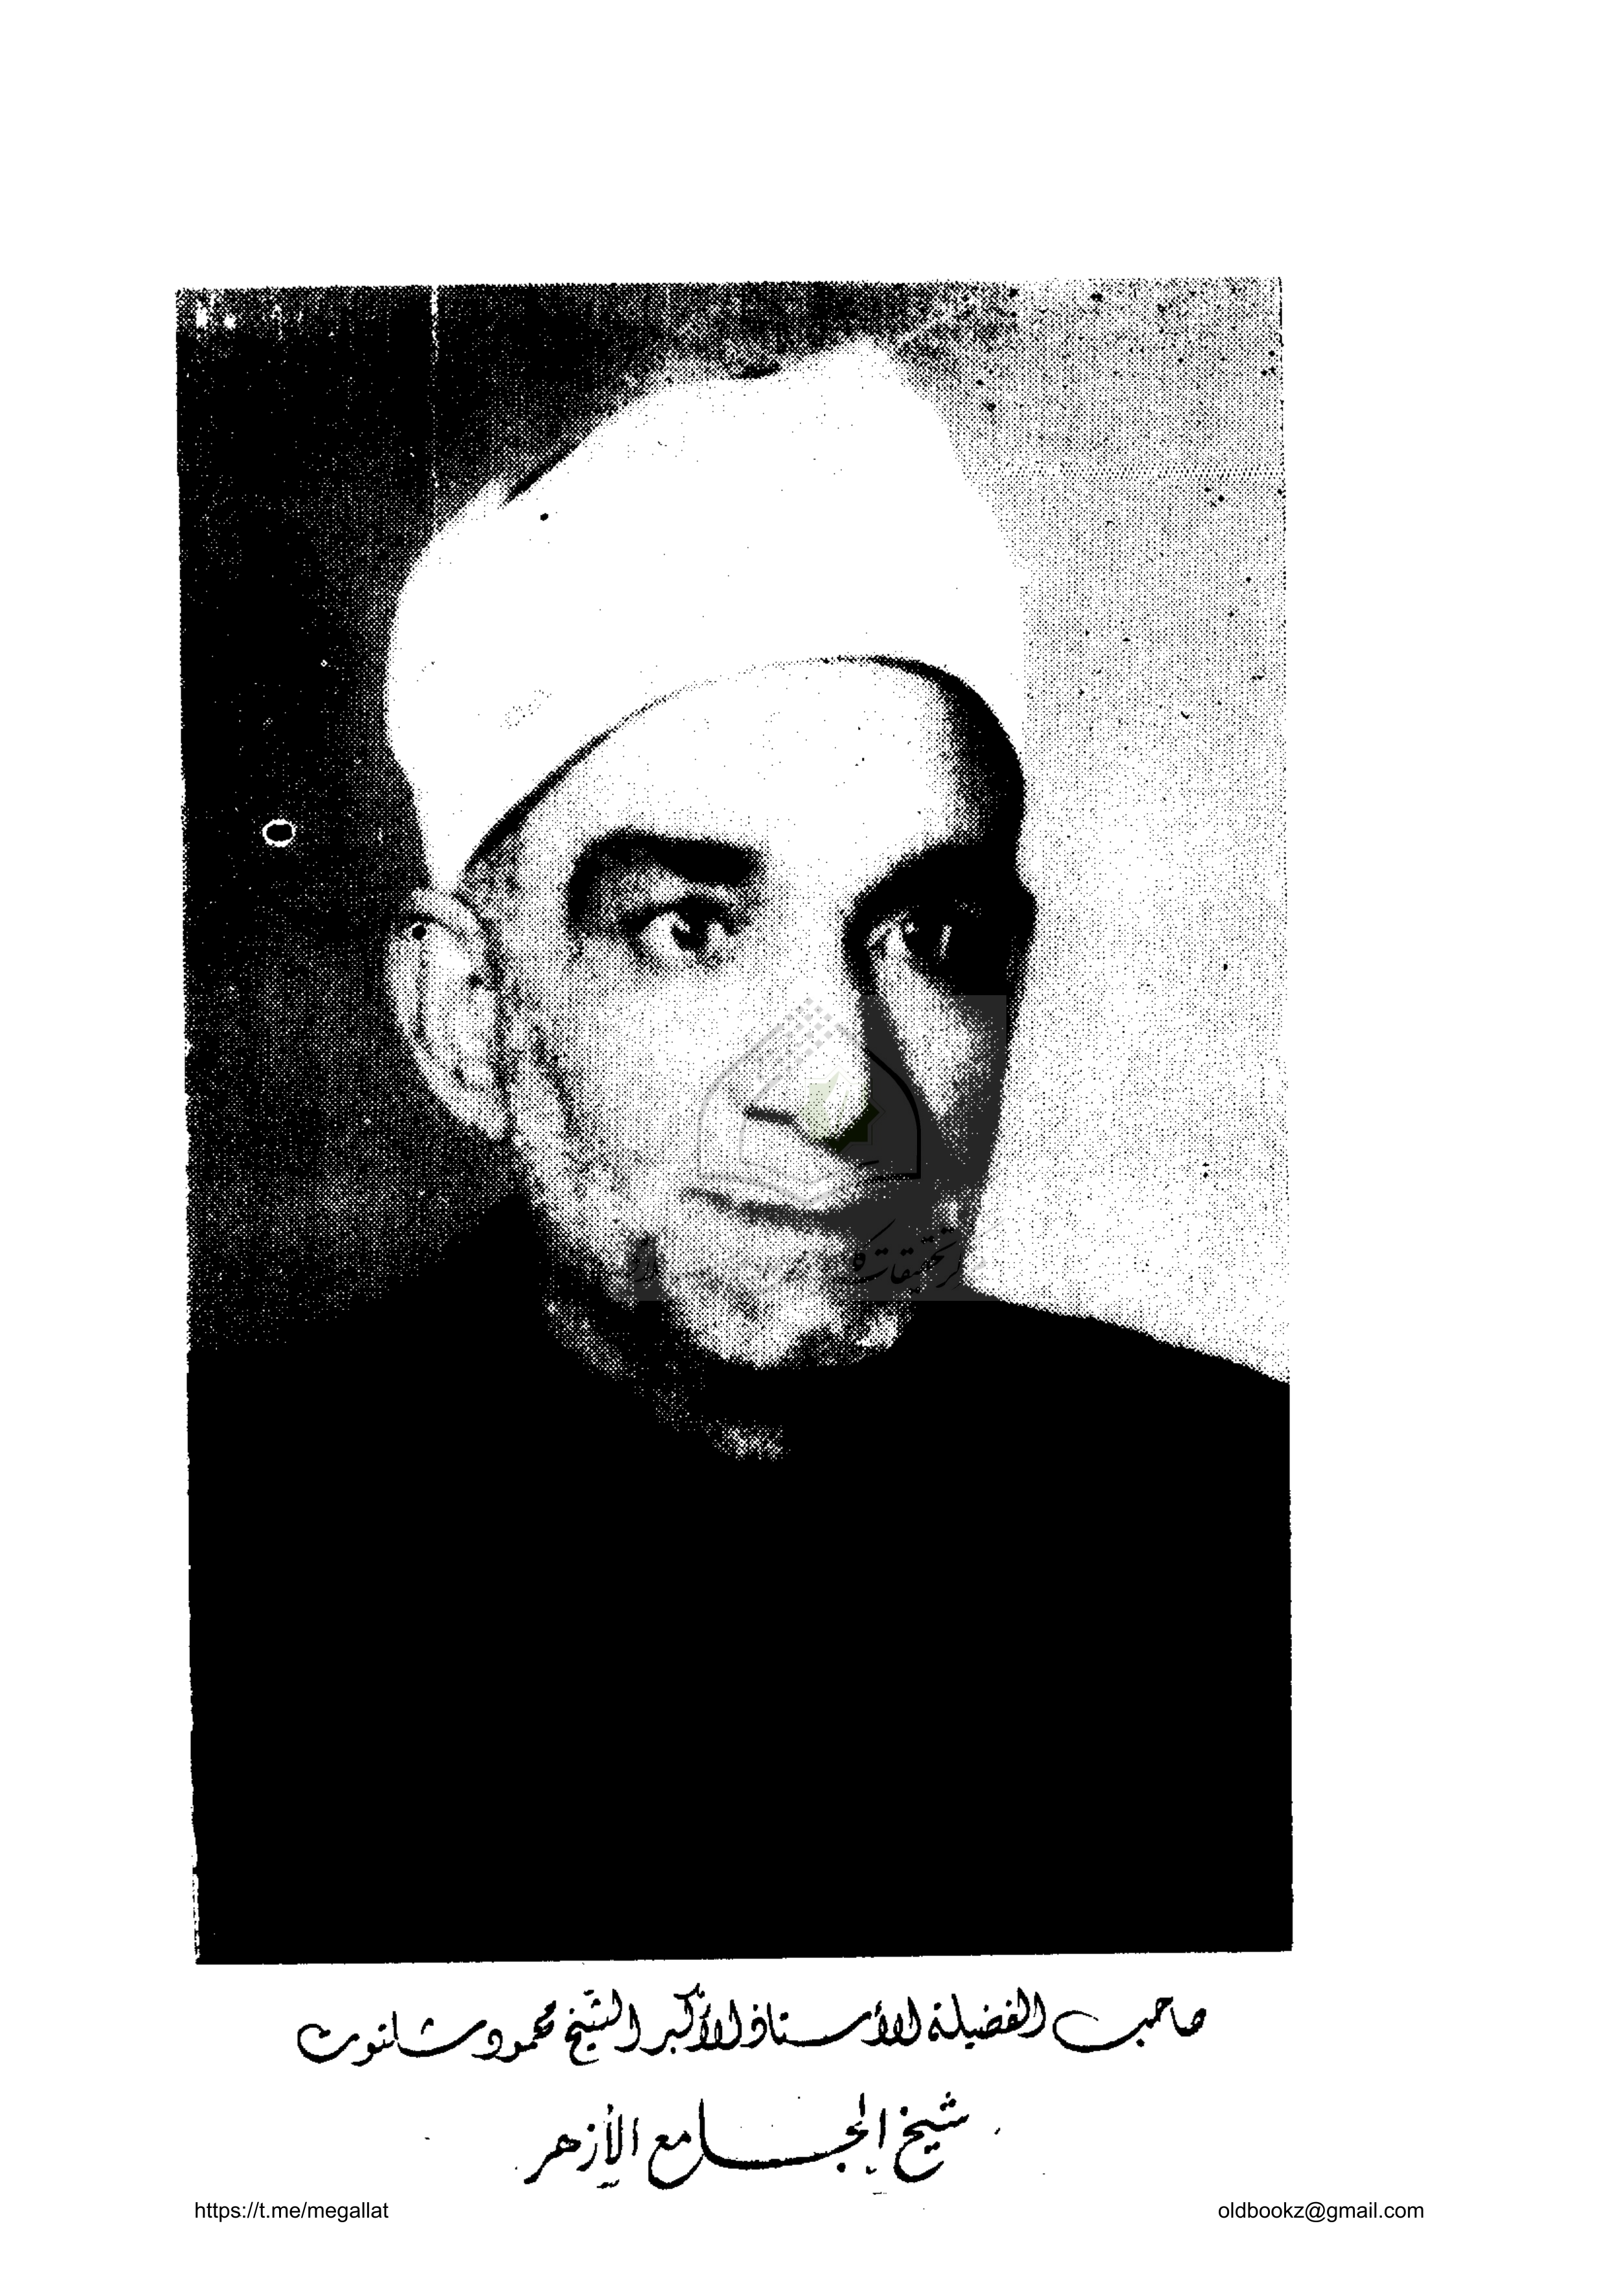 صاحب الفضيلة الأستاذ الأكبر الشيخ محمود شلتوت
شيخ الجامع الأزهر
https://t.me/megallat
oldbookz@gmail.com